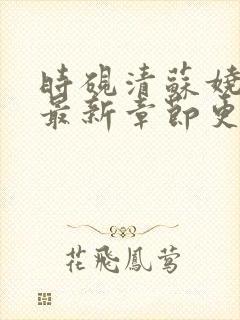 時硯清蘇嬈
最新章節更
花飛鳳鶯